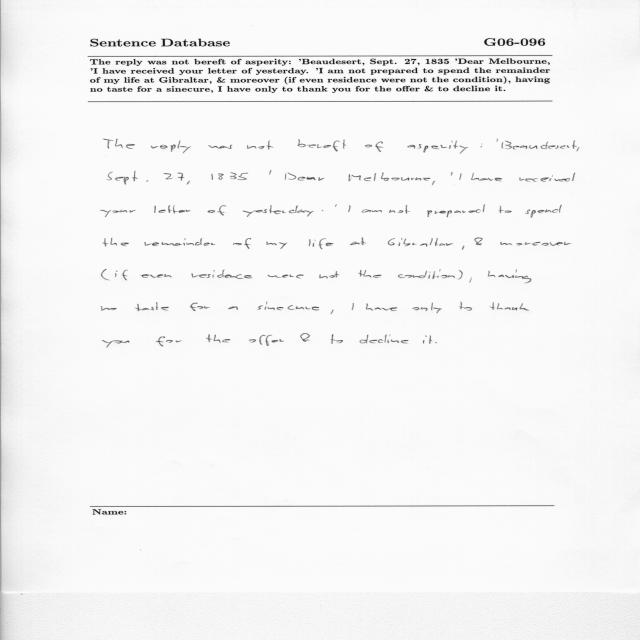 Sentence Database G06-096
The reply was not bereft of asperity: 'Beaudesert, Sept. 27, 1835 'Dear Melbourne,
'I have received your letter of yesterday. 'I am not prepared to spend the remainder
of my life at Gibraltar, & moreover (if even residence were not the condition), having
no taste for a sinecure, I have only to thank you for the offer & to decline it.
The reply was not bereft of asperity : 'Beaudesert,
Sept. 27, 1835 'Dear Melbourne, 'I have received
your letter of yesterday. 'I am not prepared to spend
the remainder of my life at Gibraltar, & moreover
(if even residence were not the condition), having
no taste for a sinecure, I have only to thank
you for the offer & to decline it.
Name: